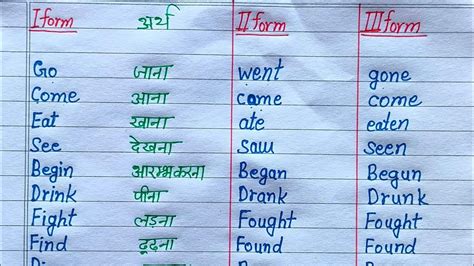 I form अर्थ II form III form
Go जाना went gone
Come आना came come
Eat खाना ate eaten
See देखना saw seen
Begin आरम्भकरना Began Begun
Drink पीना Drank Drunk
Fight लड़ना Fought Fought
Find ढूढ़ना Found Found